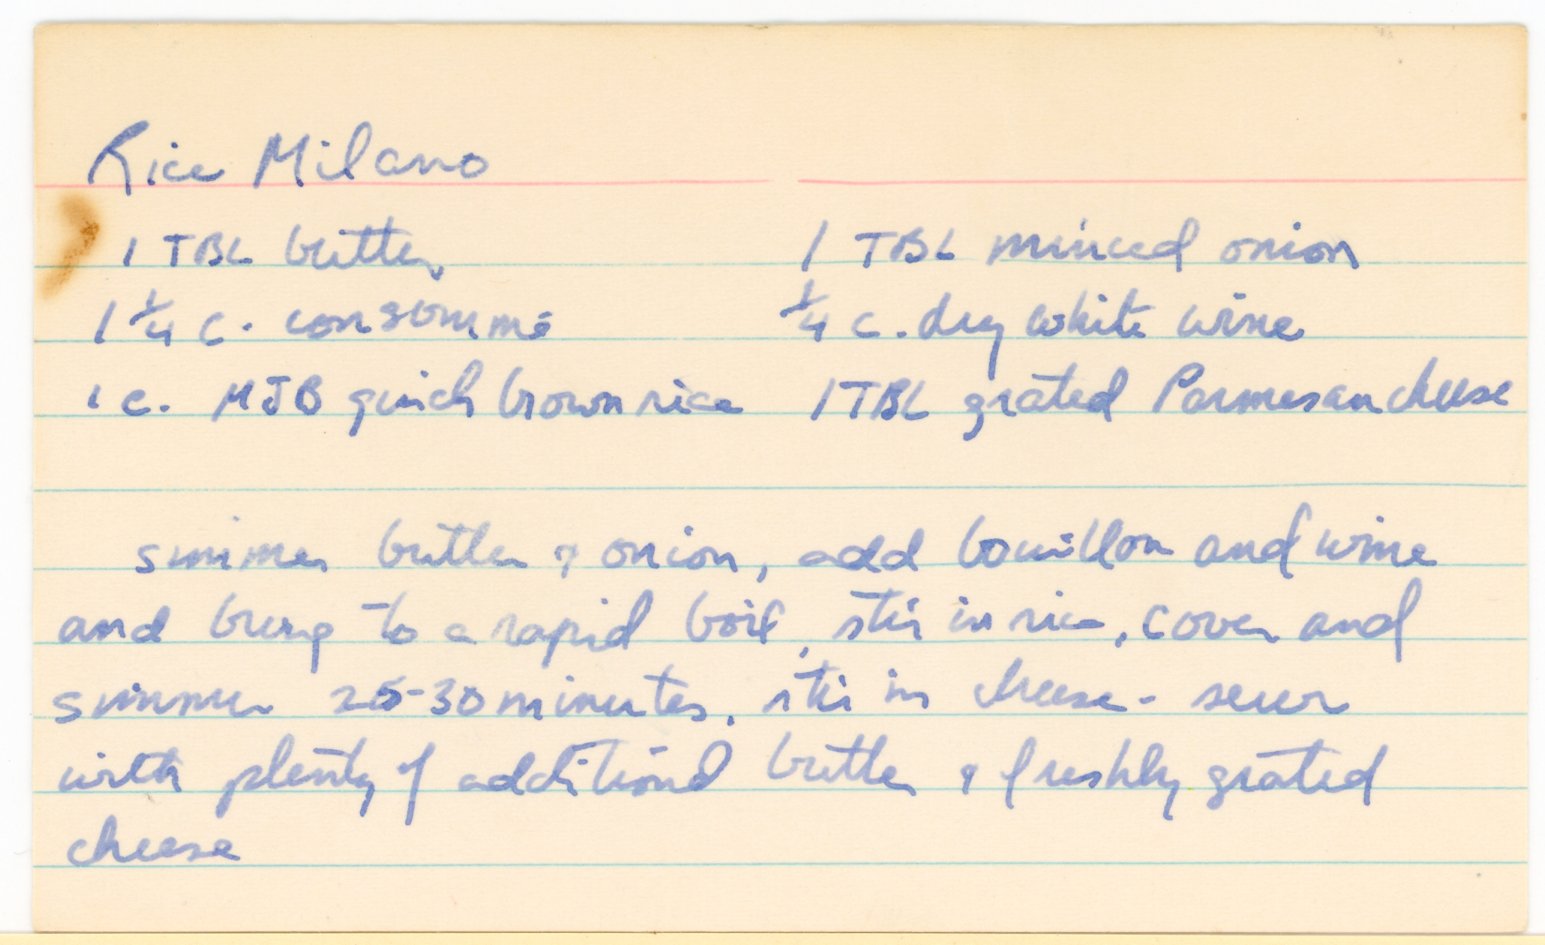 Rice Milano
1 TBL butter 1 TBL minced onion
1 1/4 c. consommé 1/4 c. dry white wine
1 c. MJB quick brown rice 1 TBL grated Parmesan cheese
simmer butter & onion, add bouillon and wine
and bring to a rapid boil, stir in rice, cover and
simmer 25-30 minutes, stir in cheese - serve
with plenty of additional butter & freshly grated
cheese